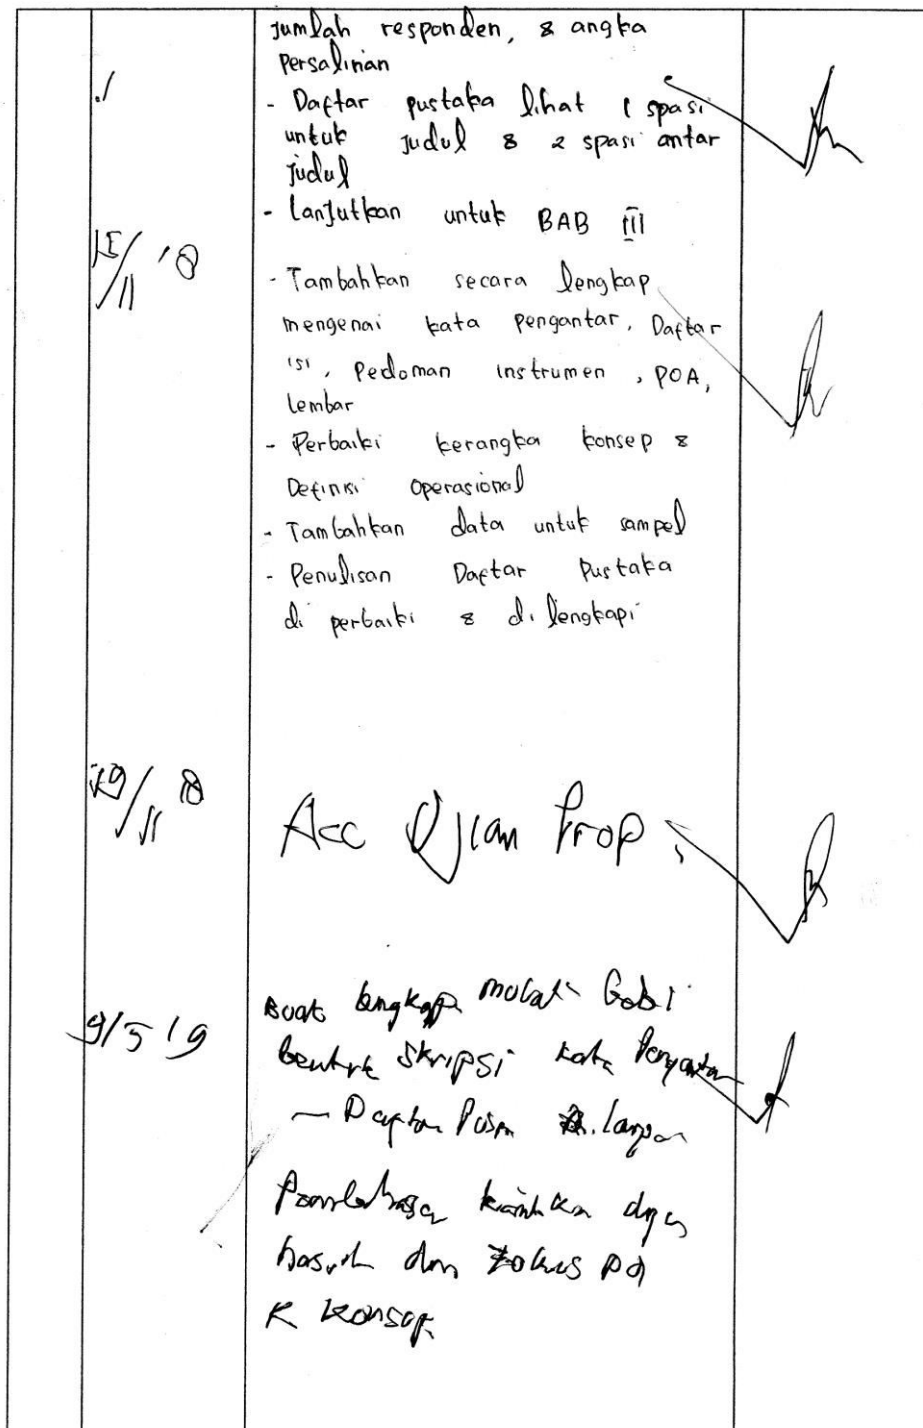 jumlah responden, & angka
persalinan
- Daftar pustaka lihat 1 spasi
untuk judul & 2 spasi antar
judul
- Lanjutkan untuk BAB III
15/11 '18
- Tambahkan secara lengkap
mengenai kata pengantar, Daftar
isi, Pedoman instrumen, POA,
lembar
- Perbaiki kerangka konsep &
Definisi Operasional
- Tambahkan data untuk sampel
- Penulisan Daftar Pustaka
di perbaiki & di lengkapi
19/11 18
Acc Ujian Prop.
9/5 19
Buat lengkap
bentuk skripsi kata Pengantar
- Daftar
dan Fokus pd
K Konsep